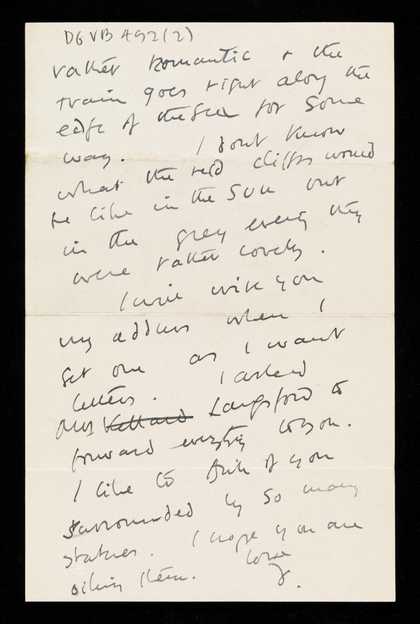 DG VB A92(2)
rather romantic & the
train goes right along the
edge of the sea for some
way. I dont know
what the red cliffs would
be like in the sun but
in the grey evening they
were rather lovely.
I will wire you
my address when I
get one as I want
letters. I asked
Mrs Kettard Langsford to
forward everything to you.
I like to think of you
surrounded by so many
statues. I hope you are
oiling them. love